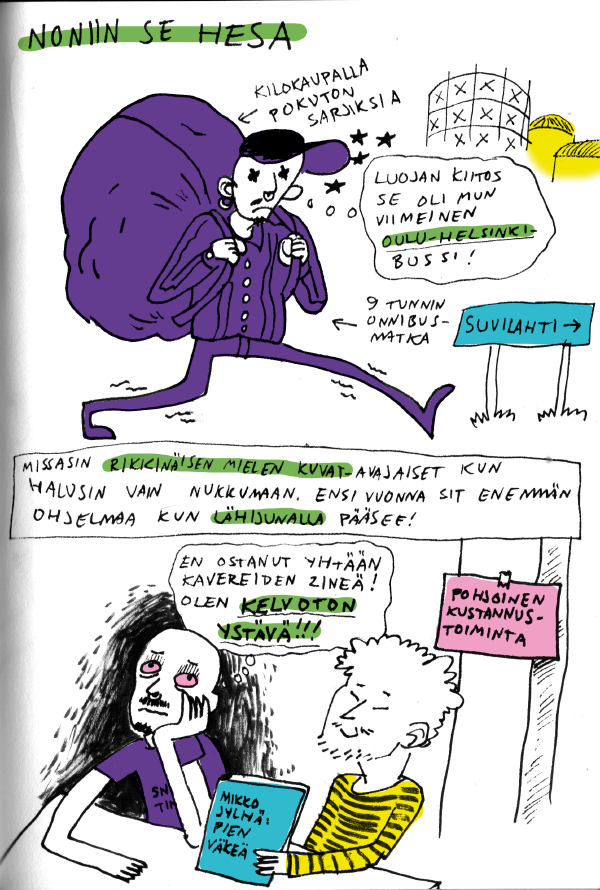 NONIIN SE HESA
KILOKAUPALLA
POKUTON
SARJIKSIA
LUOJAN KIITOS
SE OLI MUN
VIIMEINEN
OULU-HELSINKI-
BUSSI!
9 TUNNIN
ONNIBUS-
MATKA
SUVILAHTI →
MISSASIN RIKKINÄISEN MIELEN KUVAT-AVAJAISET KUN
HALUSIN VAIN NUKKUMAAN. ENSI VUONNA SIT ENEMMÄN
OHJELMAA KUN LÄHIJUNALLA PÄÄSEE!
EN OSTANUT YHTÄÄN
KAVEREIDEN ZINEÄ!
OLEN KELVOTON
YSTÄVÄ!!!
POHJOINEN
KUSTANNUS-
TOIMINTA
SN
TIN
MIKKO
JYLHÄ:
PIEN
VÄKEÄ